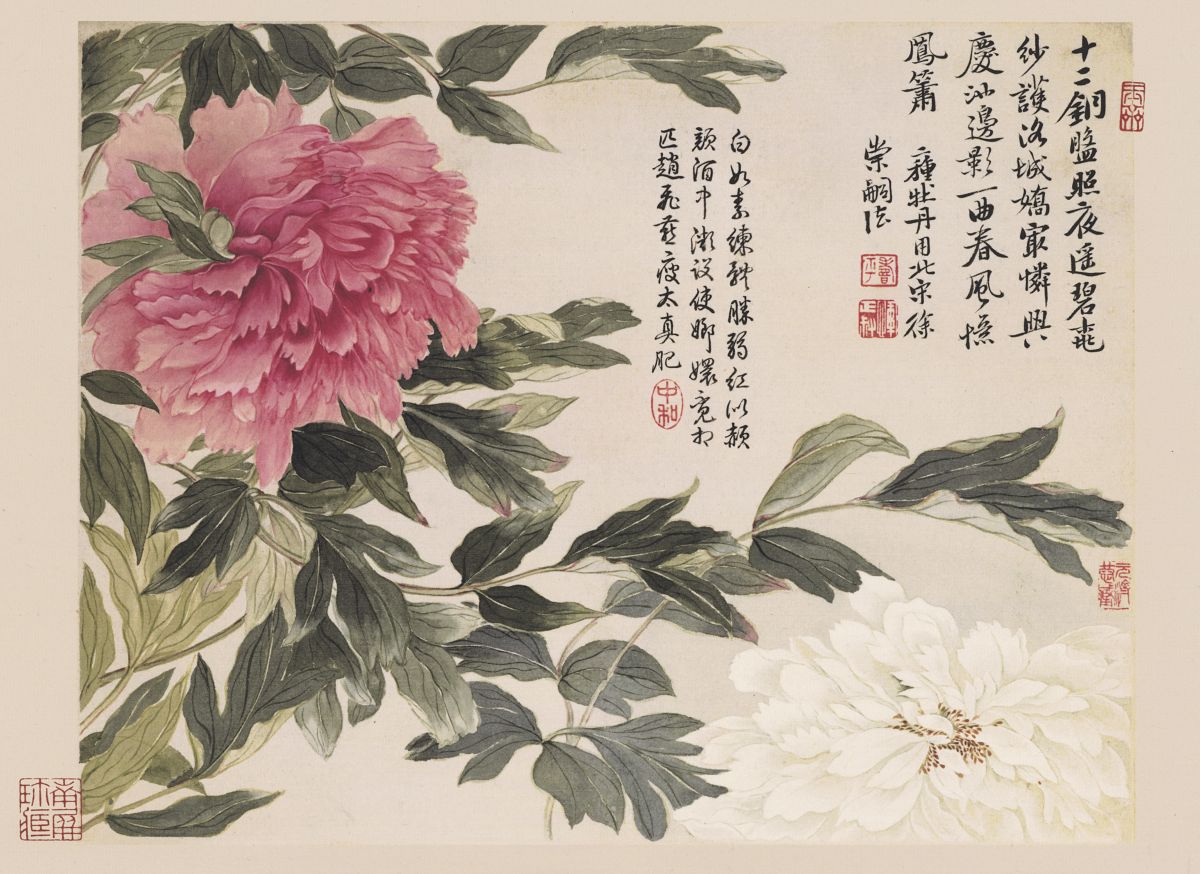 十二銅盤照夜遥碧桃
紗護洛城嬌最憐興
慶池邊影一曲春風憶
鳳簫
種牡丹用北宋徐
崇嗣法
壽平
白如素練勝弱紅以赬
顏酒半潮設使嫏嬛竟相
匹趙飛燕瘦太真肥
中和